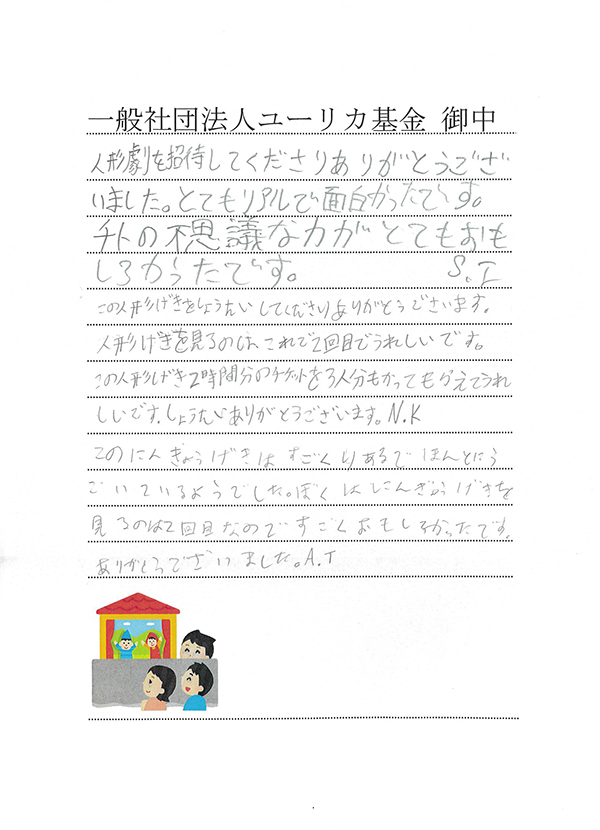 一般社団法人ユーリカ基金 御中
人形劇を招待してくださりありがとうござ
いました。とてもリアルで面白かったです。
チトの不思議な力がとてもおも
しろかったです。 S.I
この人形げきをしょうたいしてくださりありがとうございます。
人形げきを見るのは、これで2回目でうれしいです。
この人形げき2時間分のチケットを3人分もかってもらえてうれ
しいです。しょうたいありがとうございます。N.K
このにんぎょうげきはすごくりあるでほんとにう
ごいているようでした。ぼくはにんぎょうげきを
見るのは2回目なのですごくおもしろかったです。
ありがとうございました。A.T